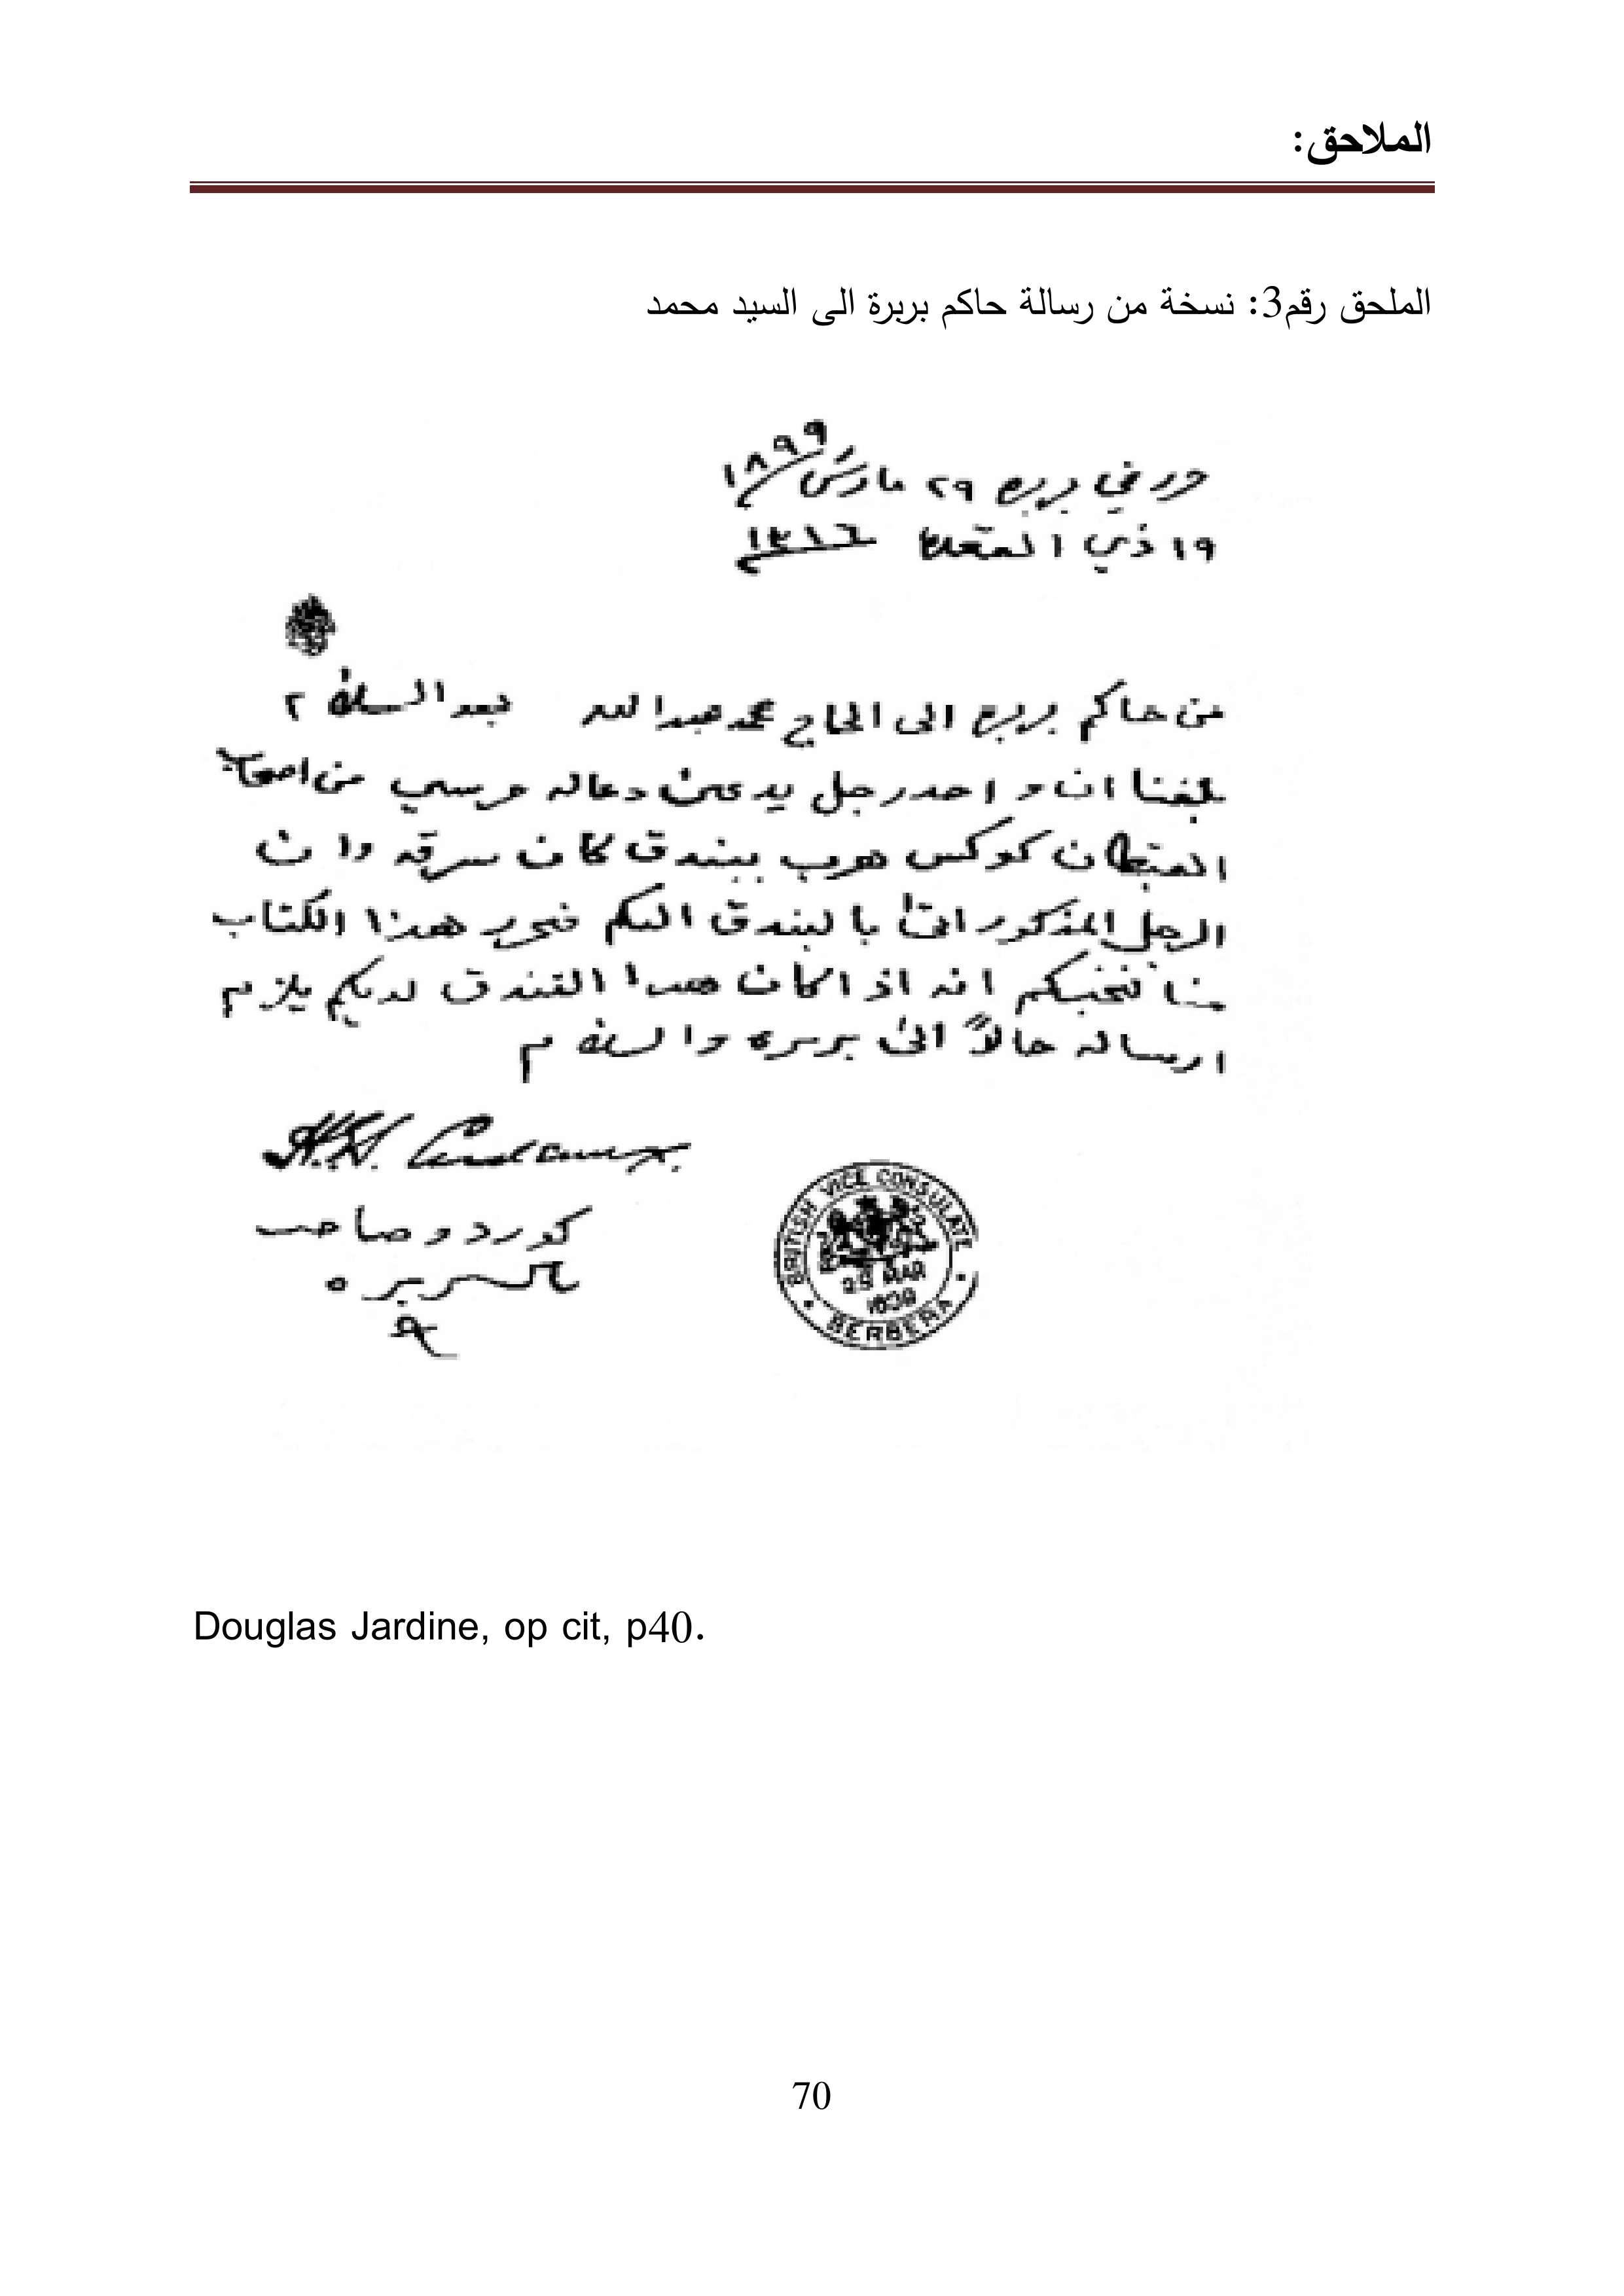 الملاحق:
الملحق رقم3: نسخة من رسالة حاكم بربرة الى السيد محمد
في بربره ٢٩ مارس ١٨٩٩
١٩ ذي القعدة ١٣١٦
من حاكم بربره الى الحاج محمد عبدالله بعد السلام
بلغنا ان واحد رجل يدعى دعاله من اصحاب
القبطان كوكس هرب ببندق كان سرقه وان
الرجل المذكور اتى بالبندق اليكم فحرر هذا الكتاب
منا نخبركم انه اذا كان هذا البندق لديكم يلزم
ارساله حالاً الى بربره والسلام
كوردو صاحب
بربره
BRITISH VICE CONSULATE
MAR
BERBERA
Douglas Jardine, op cit, p40.
70